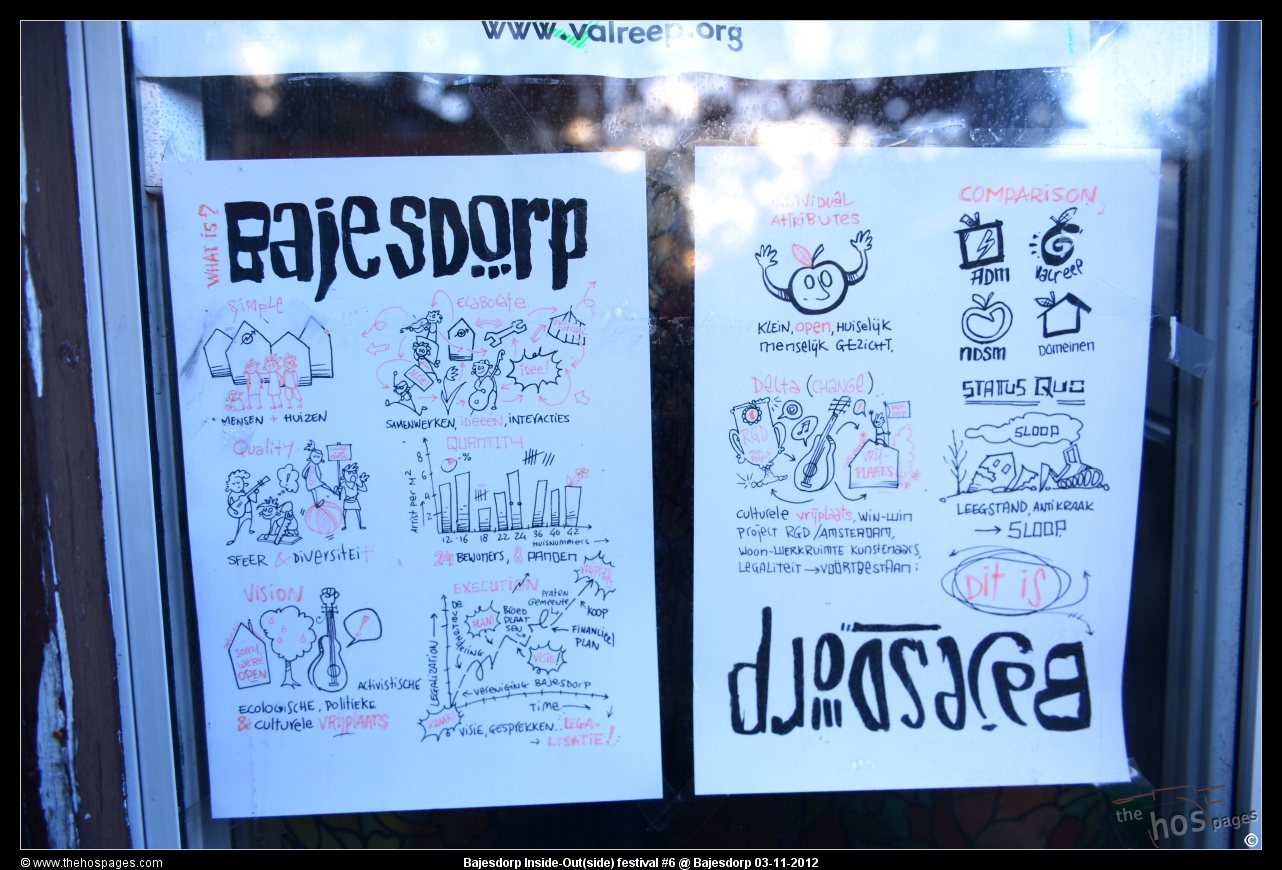 www.valreep.org
WHAT IS?
BAJESDORP
SIMPLE
MENSEN + HUIZEN
ELABORATE
FESTIVAL
idee!
SAMENWERKEN, IDEEËN, INTERACTIES
Quality
SFEER & DIVERSITEIT
QUANTITY
ARTIST PER M2
8
6
4
2
-%
12 16 18 22 24 36 40 42
HUISNUMMERS
24 BEWONERS, 8 PANDEN
VISION
SORRY, WE'RE OPEN
!
ACTIVISTISCHE
ECOLOGISCHE, POLITIEKE
& culturele VRIJPLAATS
EXECUTION
LEGALIZATION
PLAN!
BROED PLAAT SEN
PRATEN GEMEENTE
VRIJPLAATS
KOOP
FINANCIEEL PLAN
VISIE!
VERENIGING BAJESDORP
TIME
KRAAK!
VISIE, GESPREKKEN... LEGA-
LISATIE!
INDIVIDUAL
ATTRIBUTES
KLEIN, open, HUISELIJK
menselijk GEZICHT.
DELTA (CHANGE)
1
RGD
VRIJ-
PLAATS
culturele vrijplaats, WIN-WIN
PROJECT RGD/AMSTERDAM,
WOON-WERKRUIMTE KUNSTENAARS,
LEGALITEIT → VOORTBESTAAN!
COMPARISON,
ADM
Valreep
NDSM
DOMEINEN
STATUS QUO
SLOOP
LEEGSTAND, ANTIKRAAK
→ SLOOP.
Dit is
BAJESDORP
the hos pages
©
© www.thehospages.com
Bajesdorp Inside-Out(side) festival #6 @ Bajesdorp 03-11-2012